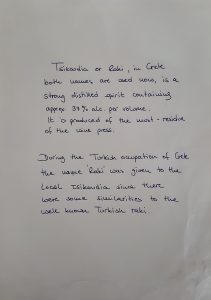 Tsikoudia or Raki, in Crete
both names are used now, is a
strong distilled spirit containing
approx 37% alc. per volume.
It is produced of the must-residue
of the wine press.
During the Turkish occupation of Crete
the name 'Raki' was given to the
local Tsikoudia since there
were some similarities to the
well known Turkish raki.